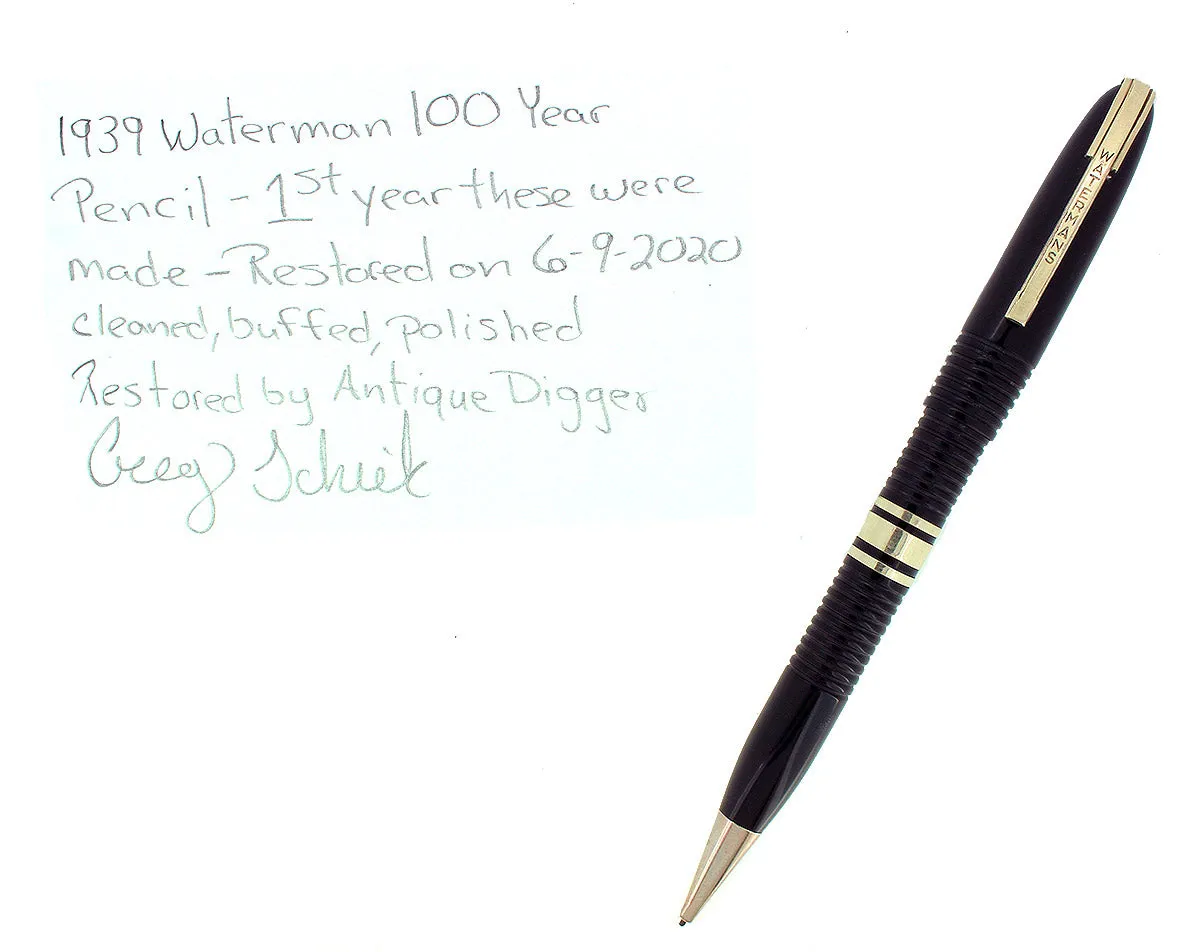 1939 Waterman 100 Year
Pencil - 1st year these were
made - Restored on 6-9-2020
cleaned, buffed, polished
Restored by Antique Digger
Greg
WATERMANS